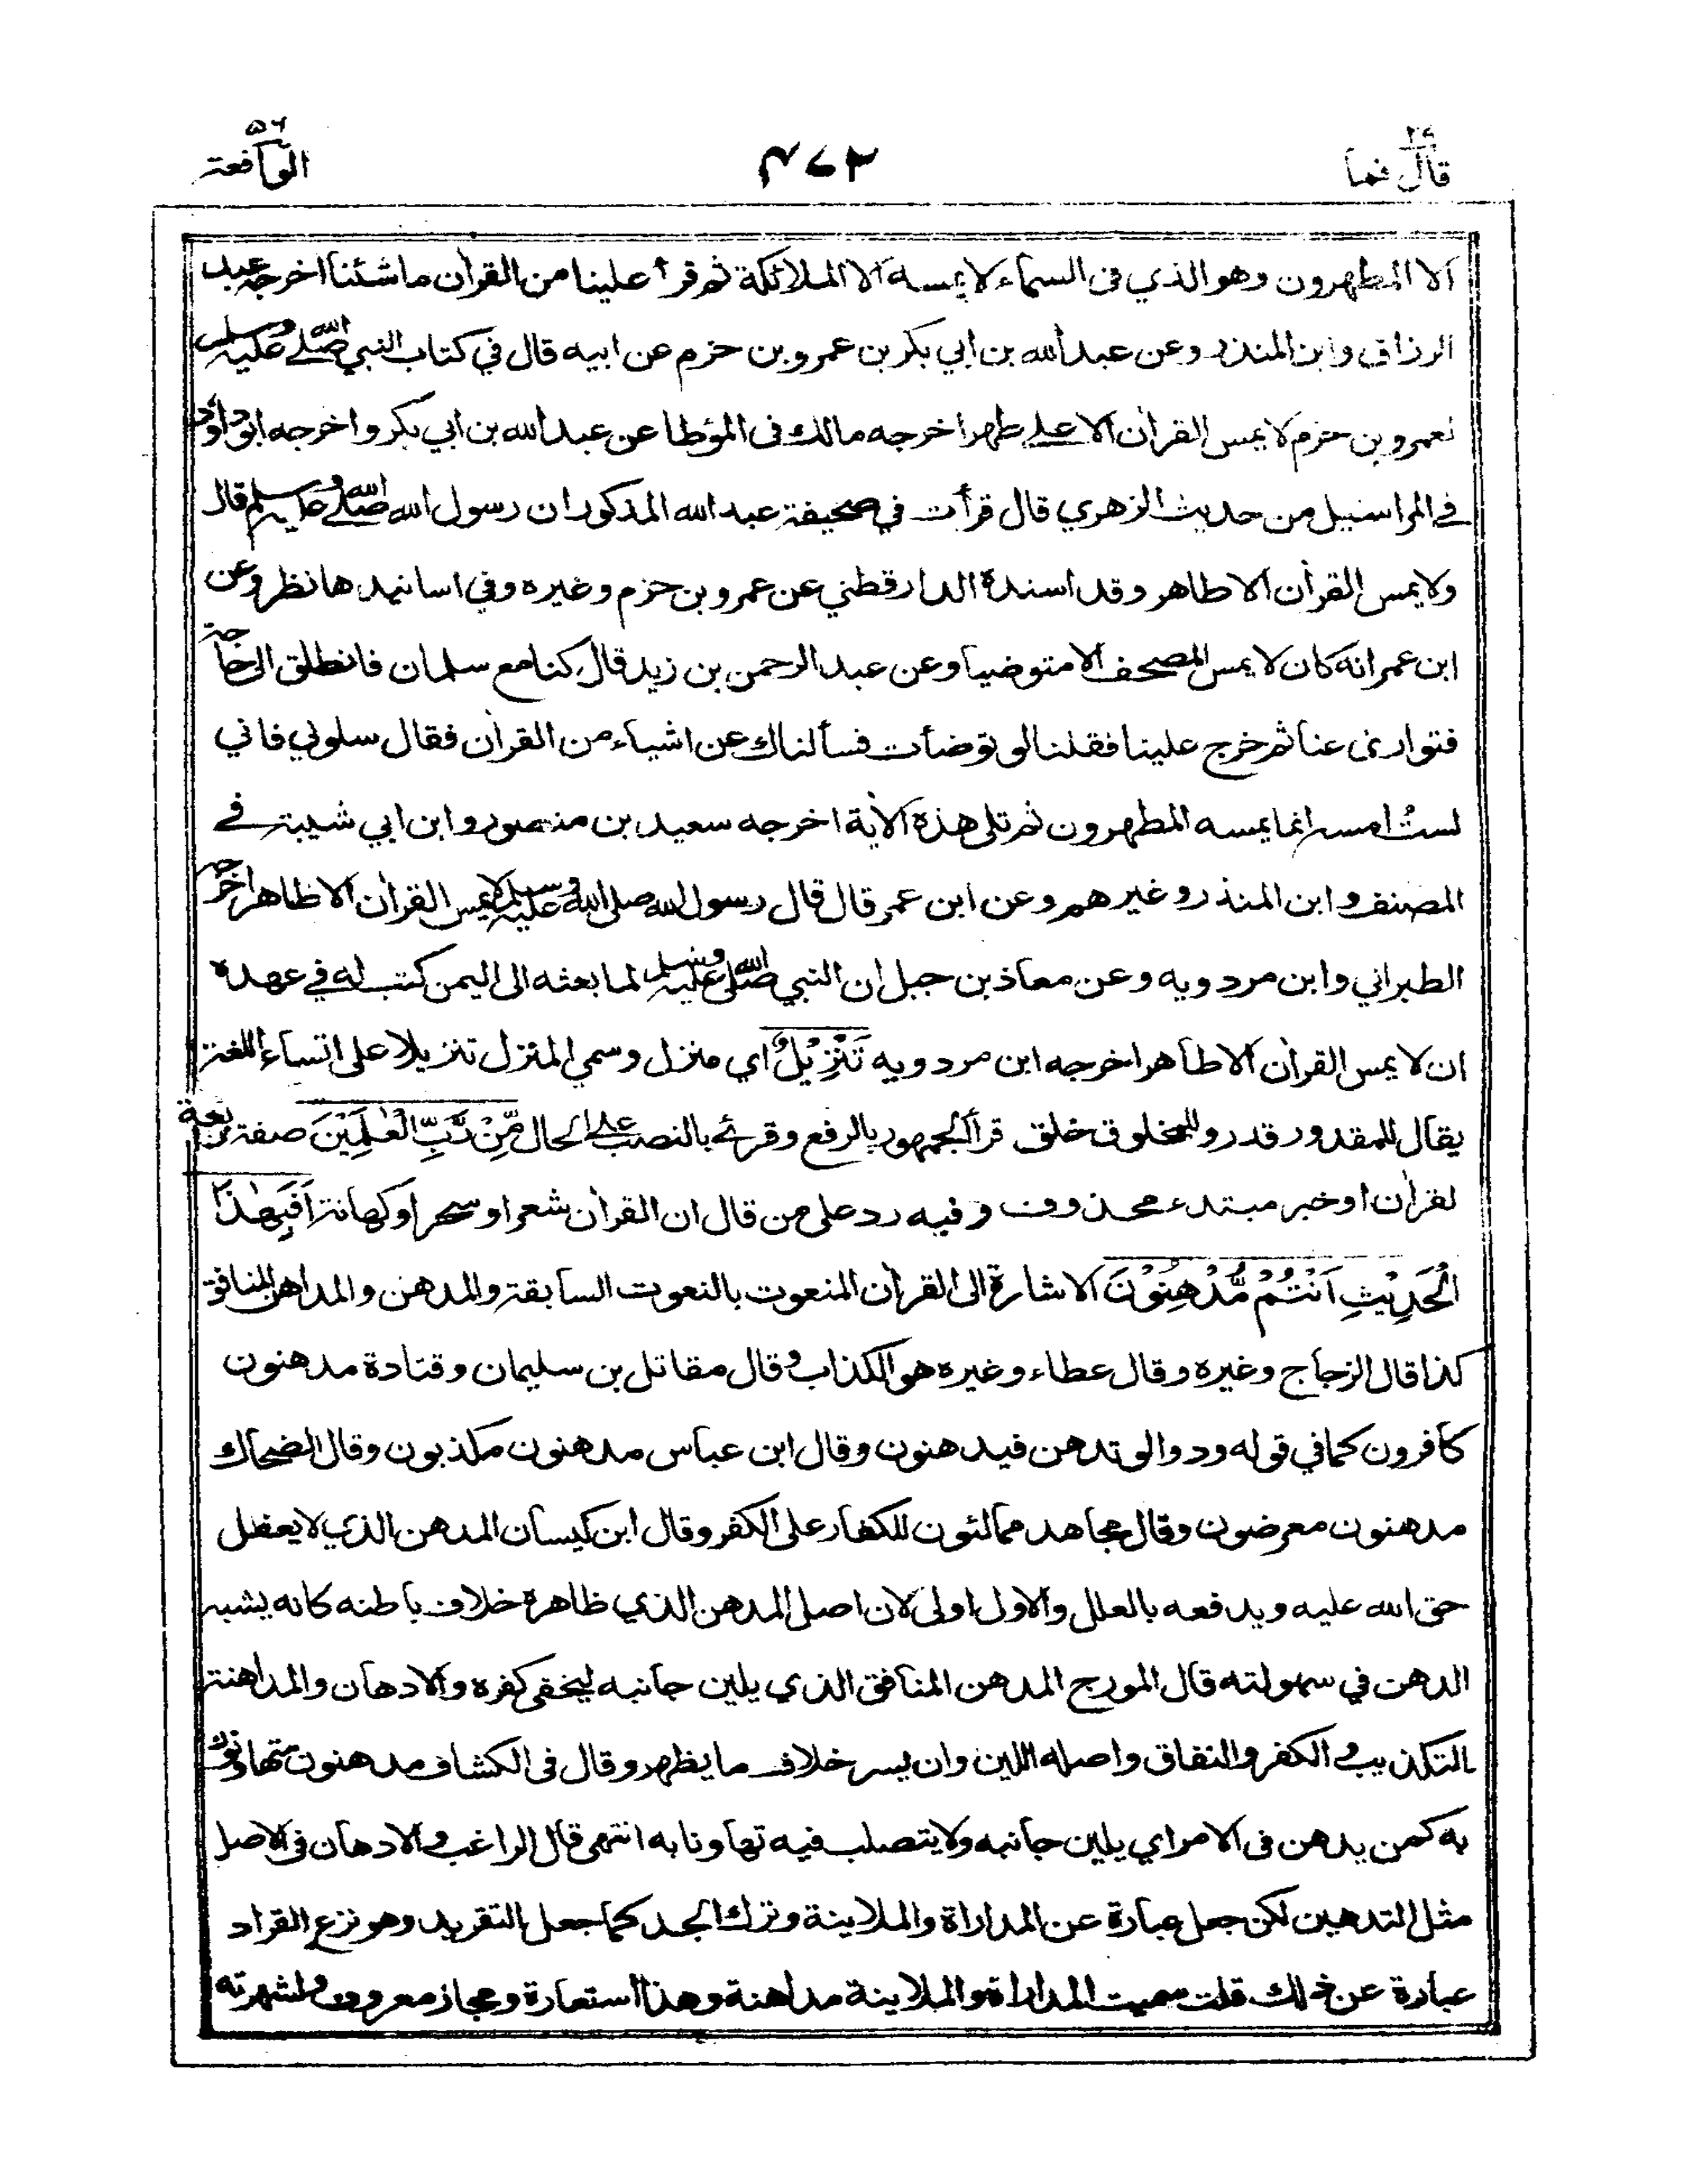 قال فما ٢٧
٤٧٢
الواقعة ٥٦
الا المطهرون وهو الذي فى السماء لا يمسه الا الملائكة ثم قرأ علينا من القرآن ما شئنا اخرجه عبد
الرزاق وابن المنذر وعن عبد الله بن ابي بكر بن عمرو بن حزم عن ابيه قال في كتاب النبي صلى الله عليه وسلم
لعمرو بن حزم لا يمس القرآن الا على طهر اخرجه مالك فى المؤطا عن عبد الله بن ابي بكر واخرجه ابو داود
في المراسيل من حديث الزهري قال قرأت في صحيفة عبد الله المذكور ان رسول الله صلى الله عليه وسلم قال
ولا يمس القرآن الا طاهر وقد اسنده الدارقطني عن عمرو بن حزم وغيره وفي اسانيدها نظر وعن
ابن عمر انه كان لا يمس المصحف الا متوضيا وعن عبد الرحمن بن زيد قال كنا مع سلمان فانطلق الى حاجة
فتوارى عنا ثم خرج علينا فقلنا لو توضأت فسألناك عن اشياء من القرآن فقال سلوني فاني
لستُ امسه انما يمسه المطهرون ثم تلى هذه الآية اخرجه سعيد بن منصور وابن ابي شيبة في
المصنف وابن المنذر وغيرهم وعن ابن عمر قال قال رسول الله صلى الله عليه وسلم لا يمس القرآن الا طاهر اخرجه
الطبراني وابن مردويه وعن معاذ بن جبل ان النبي صلى الله عليه وسلم لما بعثه الى اليمن كتب له في عهده
ان لا يمس القرآن الا طاهر اخرجه ابن مردويه تَنْزِيْلٌ اي منزل وسمي المنزل تنزيلا على اتساع اللغة
يقال للمقدور قدر وللمخلوق خلق قرأ الجمهور بالرفع وقرئ بالنصب على الحال مِّنْ رَّبِّ الْعٰلَمِيْنَ صفة رابعة
لقرآن او خبر مبتدء محذوف وفيه رد على من قال ان القرآن شعر او سحر او كهانة اَفَبِهٰذَا
الْحَدِيْثِ اَنْتُمْ مُّدْهِنُوْنَ الاشارة الى القرآن المنعوت بالنعوت السابقة والمدهن والمداهن المنافق
كذا قال الزجاج وغيره وقال عطاء وغيره هو الكذاب وقال مقاتل بن سليمان وقتادة مدهنون
كافرون كما في قوله ودوا لو تدهن فيدهنون وقال ابن عباس مدهنون مكذبون وقال الضحاك
مدهنون معرضون وقال مجاهد ممالئون للكفار على الكفر وقال ابن كيسان المدهن الذي لا يعقل
حق الله عليه ويدفعه بالعلل والاول اولى لان اصل المدهن الذي ظاهره خلاف باطنه كانه يشبه
الدهن في سهولته قال المورج المدهن المنافق الذي يلين جانبه ليخفي كفره والادهان والمداهنة
التكذيب والكفر والنفاق واصله اللين وان يسر خلاف ما يظهر وقال فى الكشاف مدهنون متهاونون
به كمن يدهن فى الامر اي يلين جانبه ولا يتصلب فيه تهاونا به انتهى قال الراغب والادهان فى الاصل
مثل التدهين لكن جعل عبارة عن المداراة والملاينة وترك الجد كما جعل التقريد وهو نزع القراد
عبارة عن ذلك قلت سميت المداراة والملاينة مداهنة وهذا استعارة ومجاز معروف ولشهرته